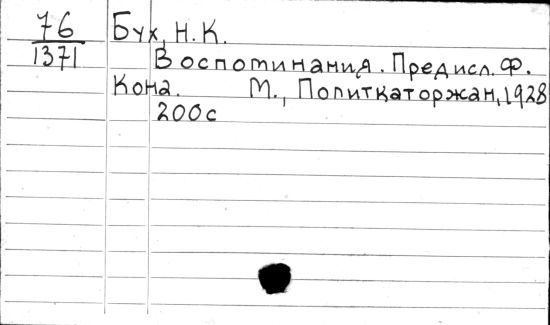 76 Бух, Н.К.
1371 Воспоминания. Предисл. Ф.
Кона. М., Политкаторжан, 1928
200с